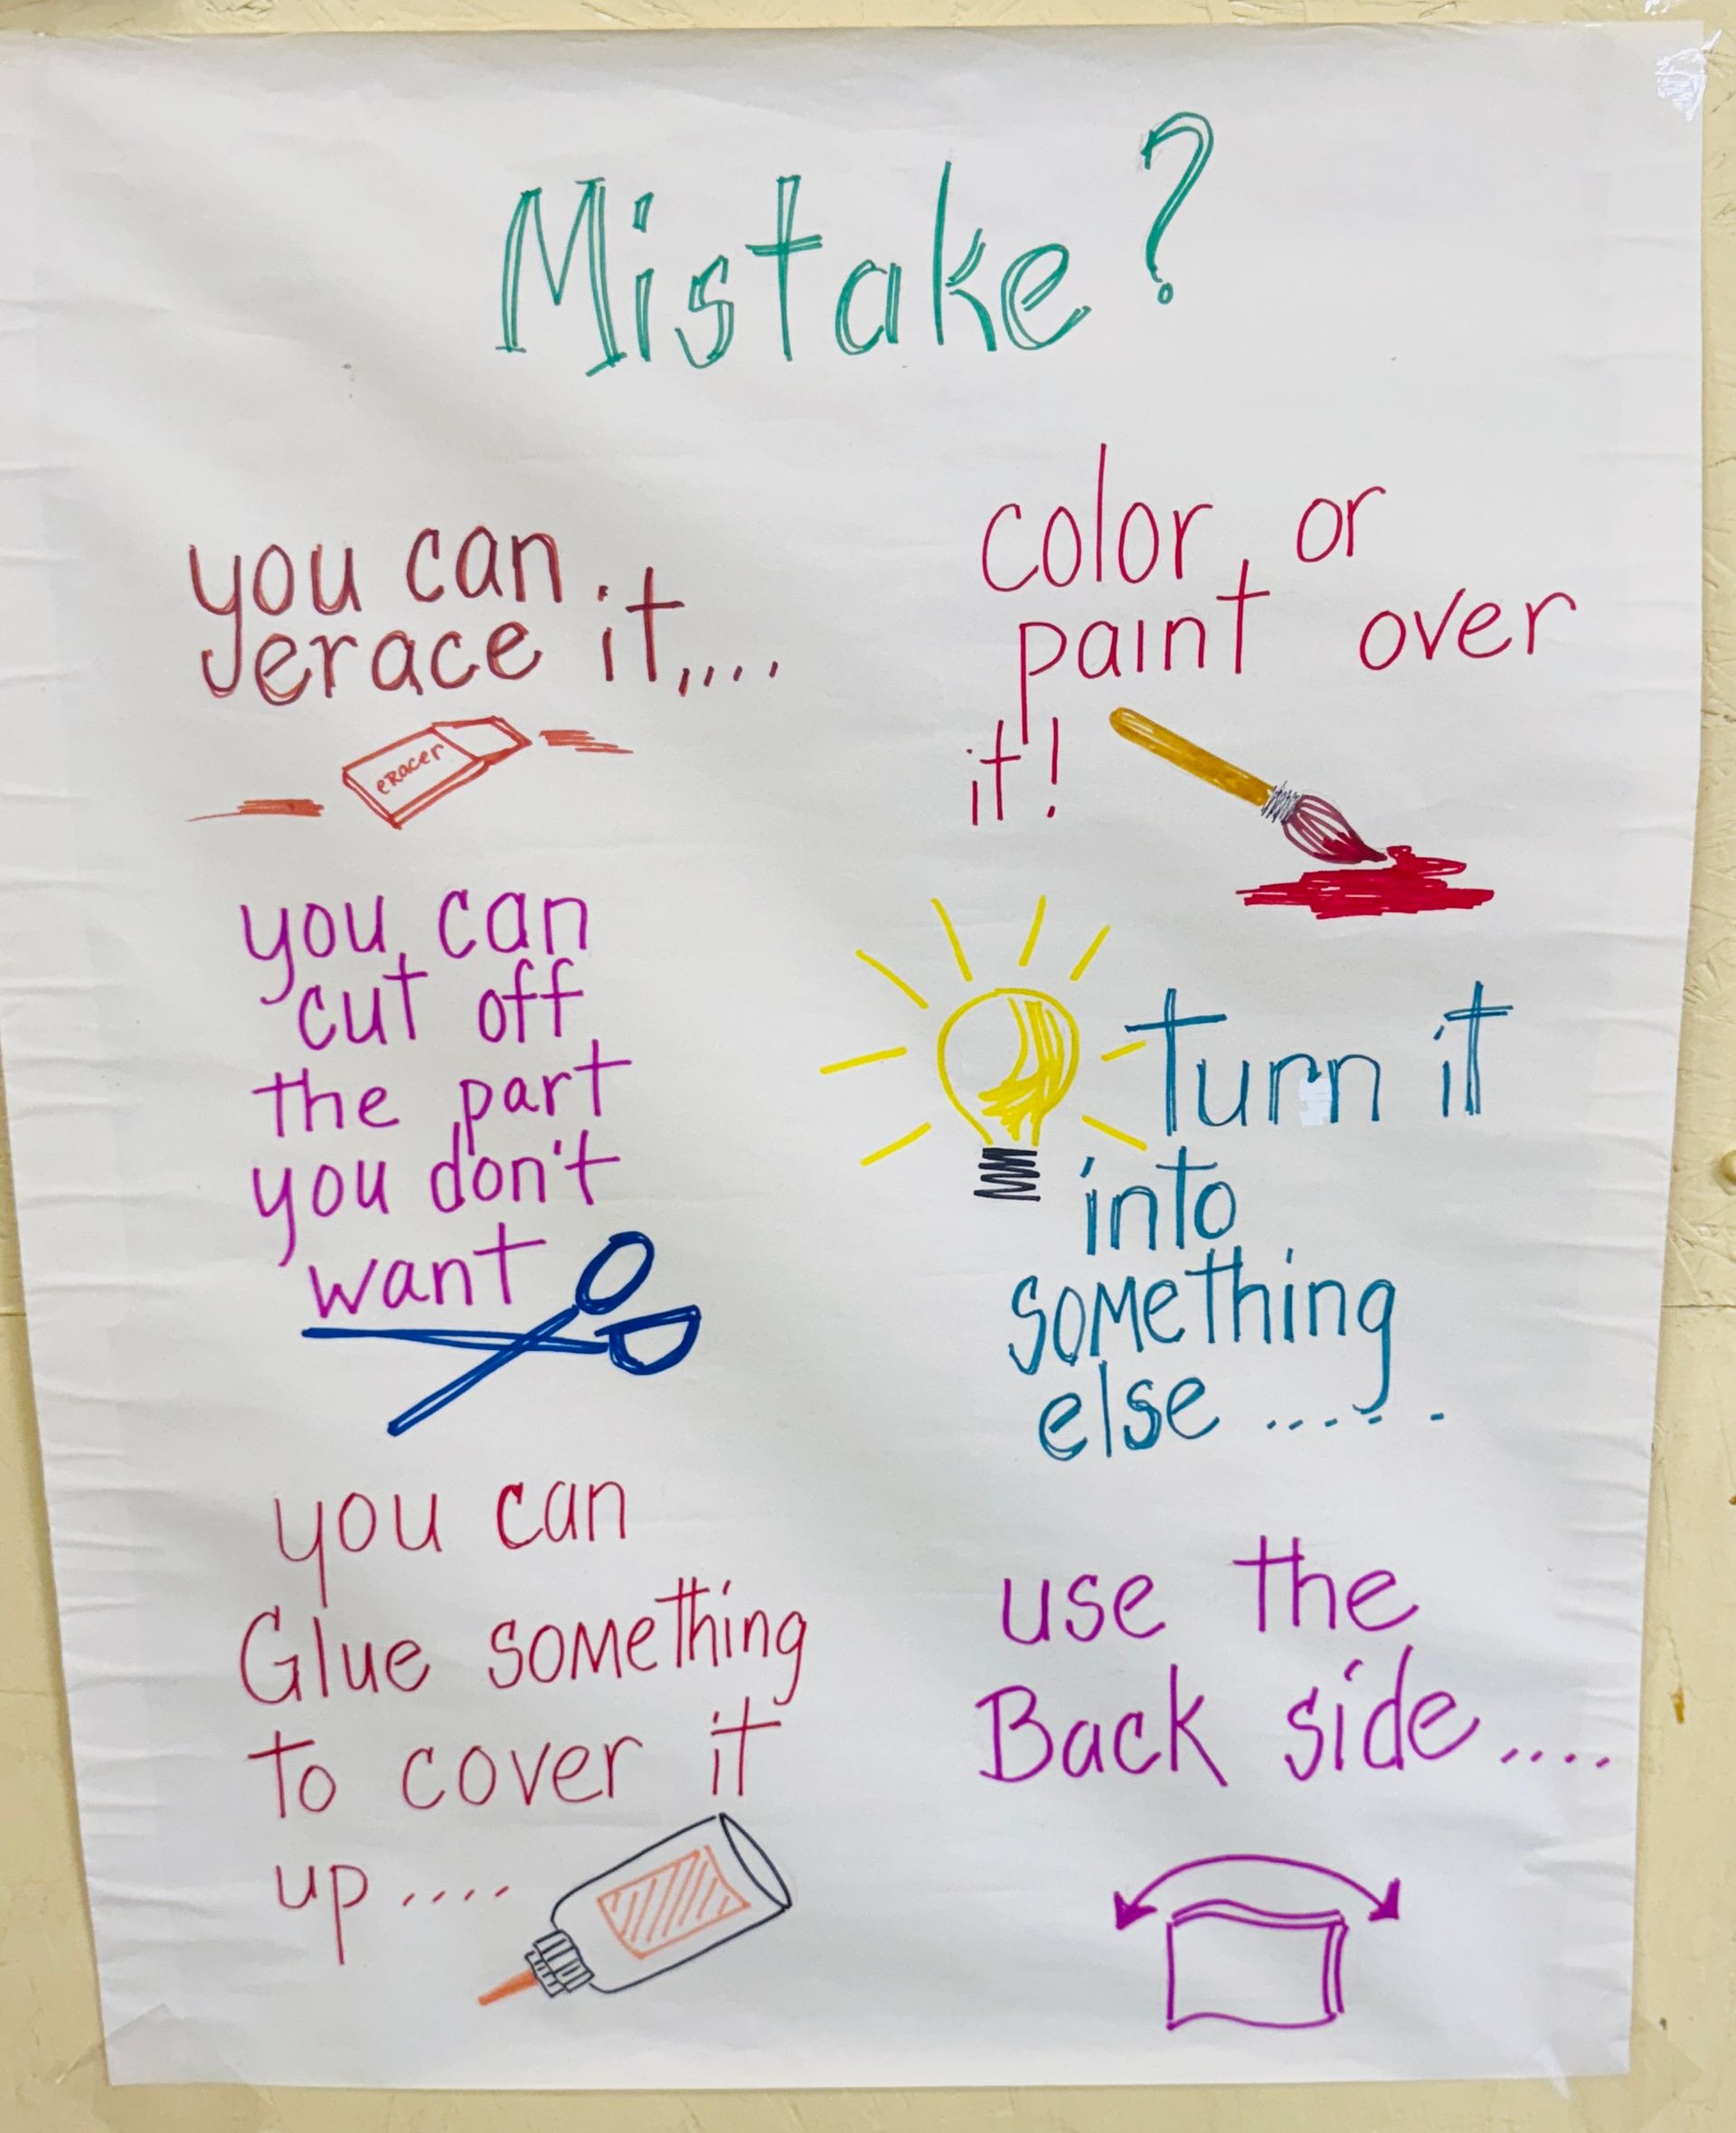 Mistake?
you can
erace it,,...
eRacer
color or
paint over
it!
you can
cut off
the part
you don't
want
turn it
into
something
else......
you can
Glue something
to cover it
up....
use the
Back side....